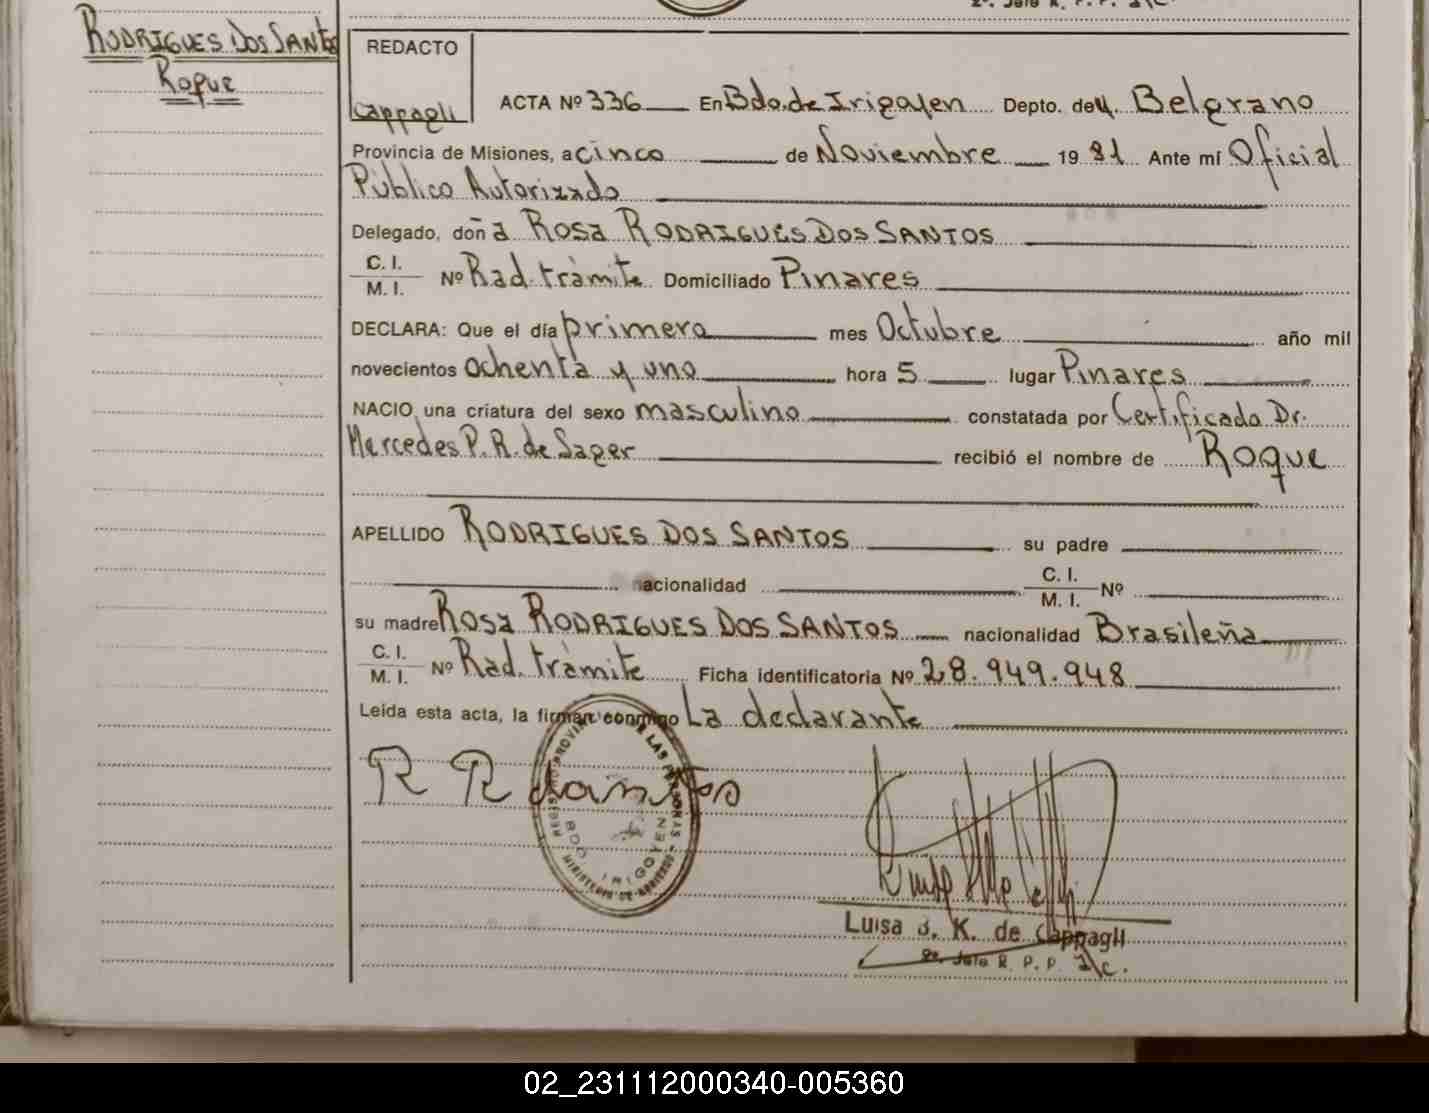 RODRIGUES DOS SANTOS
Roque
REDACTO
Cappagli
ACTA Nº 336 En Bdo. de Irigoyen Depto. de M. Belgrano
Provincia de Misiones, a cinco de Noviembre 19 81 Ante mí Oficial
Público Autorizado
Delegado, doña Rosa RODRIGUES DOS SANTOS
C. I.
M. I. Nº Rad. tràmite Domiciliado Pinares
DECLARA: Que el día primero mes Octubre año mil
novecientos ochenta y uno hora 5 lugar Pinares
NACIO una criatura del sexo masculino constatada por Certificado Dr.
Mercedes P. R. de Sager recibió el nombre de Roque
APELLIDO RODRIGUES DOS SANTOS su padre
nacionalidad C. I.
M. I. Nº
su madre Rosa RODRIGUES DOS SANTOS nacionalidad Brasileña
C. I.
M. I. Nº Rad. tràmite Ficha identificatoria Nº 28.949.948
Leída esta acta, la firman conmigo La declarante
R R danstos
REGISTRO PROVINCIAL DE LAS PERSONAS
BDO. IRIGOYEN
MINISTERIO DE GOBIERNO
Luisa B. K. de Cappagli
2º. Jefe R. P. P. I/c.
02_231112000340-005360